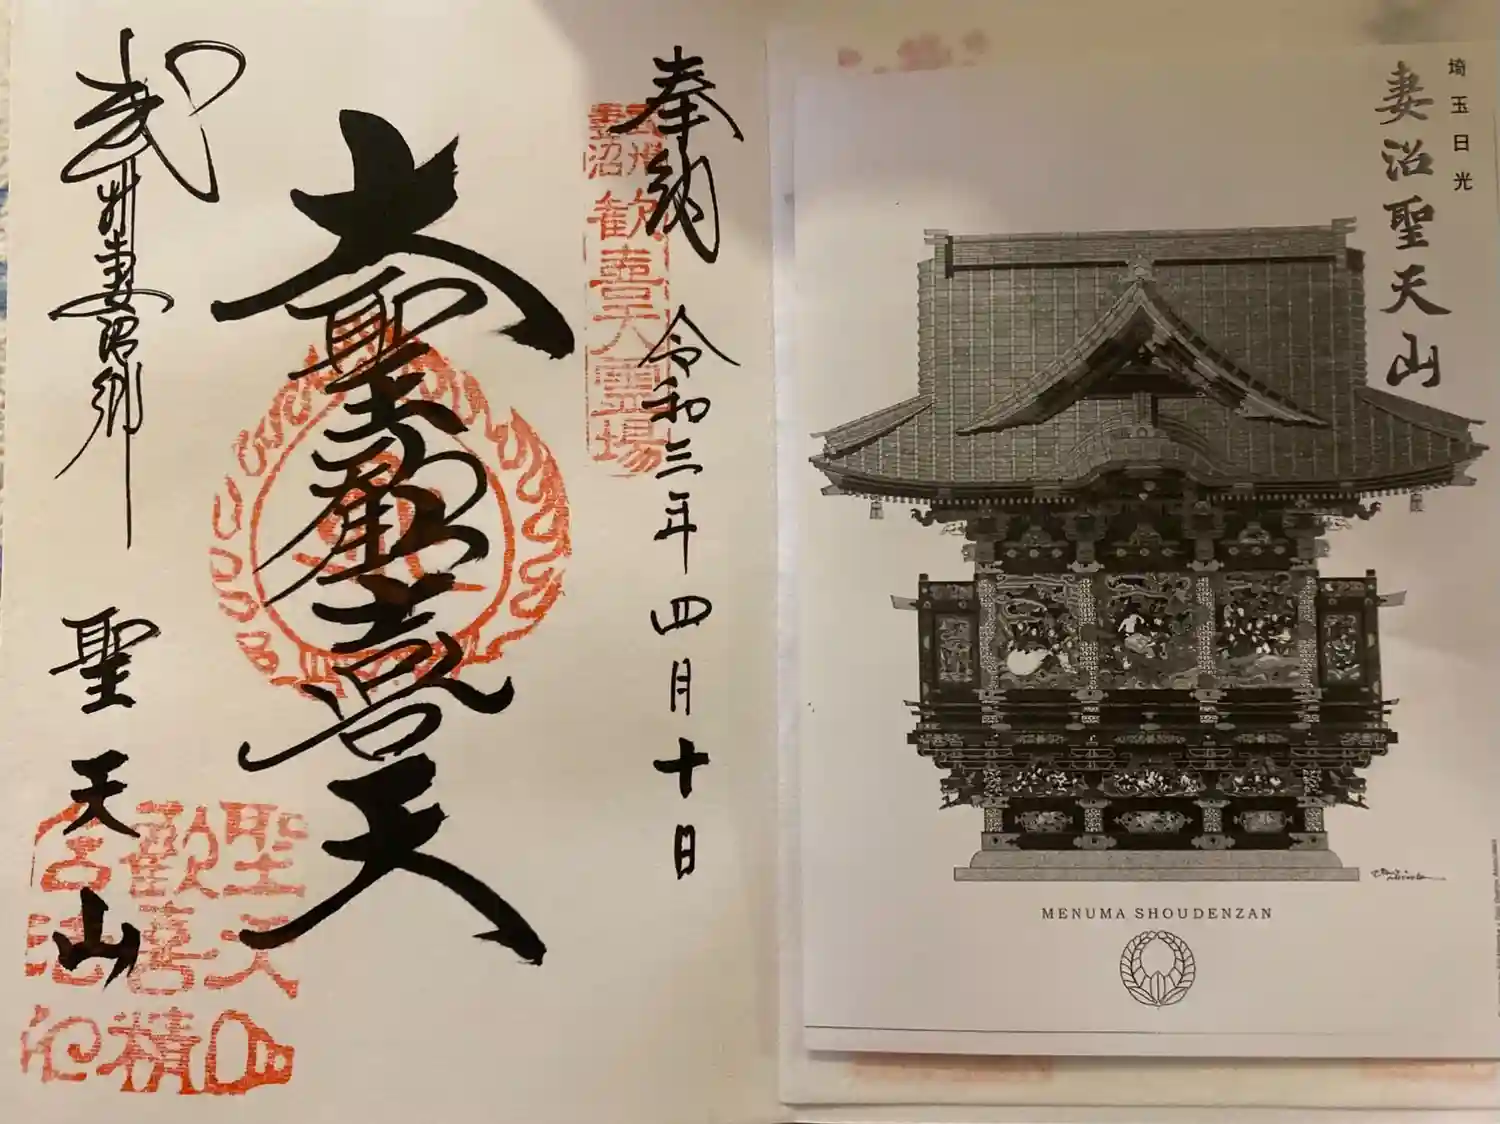 奉納
令和三年四月十日
武州妻沼
歓喜天霊場
大聖歓喜天
武州妻沼郷
聖天山
聖天山
歓喜精
埼玉日光
妻沼聖天山
MENUMA SHOUDENZAN